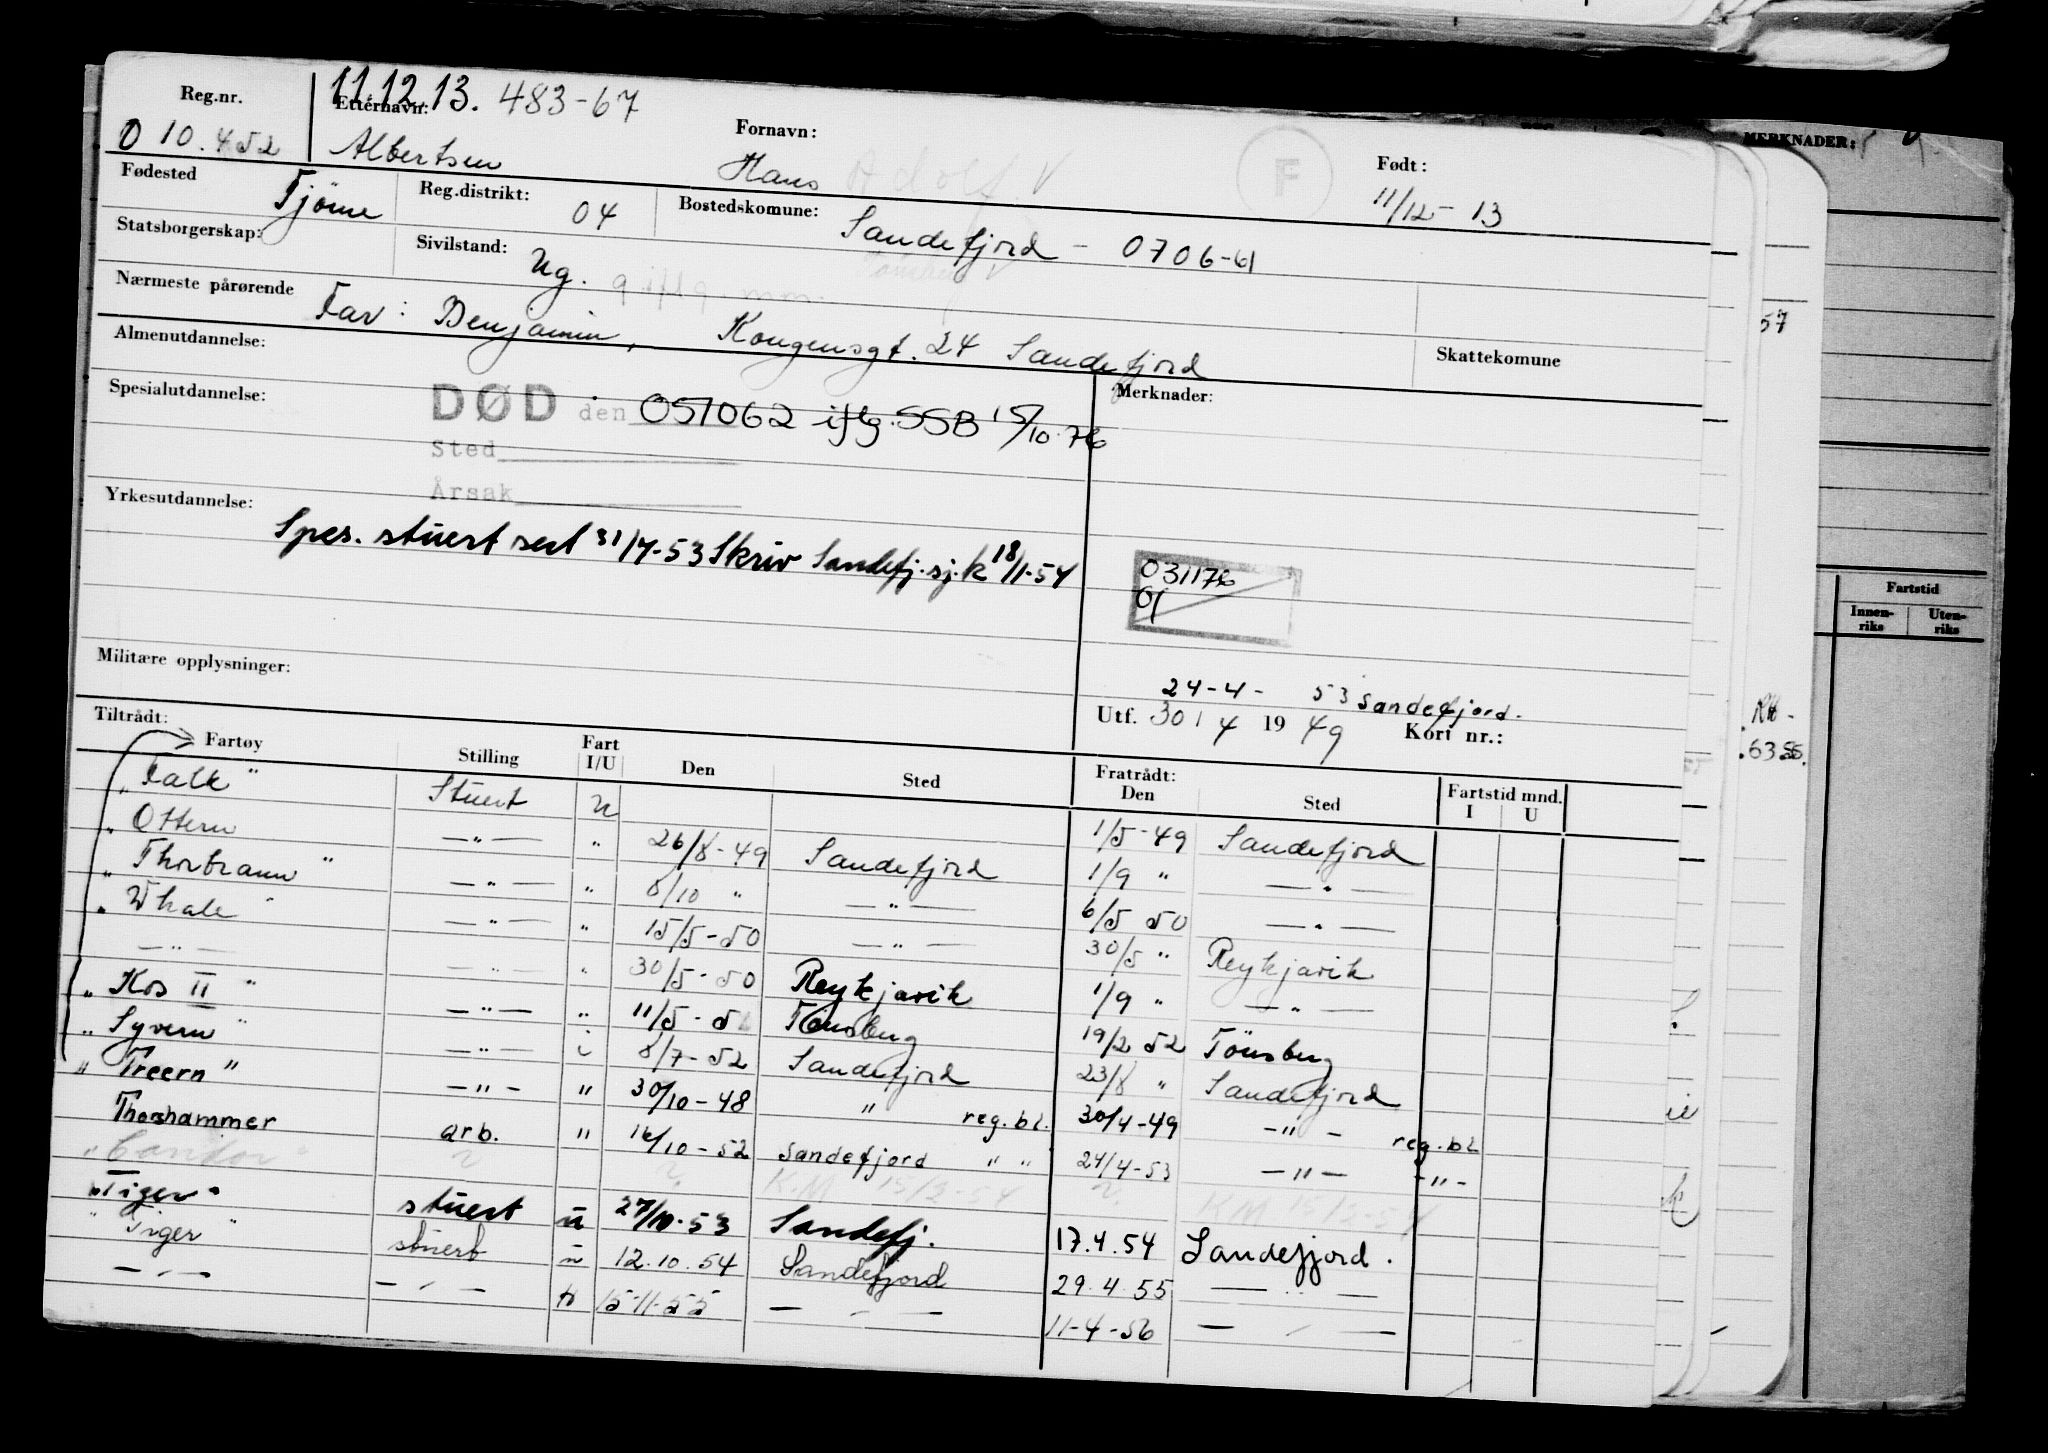 Reg.nr. 11.12.13. 483-67
Etternavn: Fornavn: Født:
O 10.452 Albertsen Hans Adolf V F 11/12-13
Fødested Tjöme Reg.distrikt: 04 Bostedskomune: Sandefjord - 0706-61
Statsborgerskap: Sivilstand: Ug. gift
Nærmeste pårørende Far: Benjamin, Kongensgt. 24 Sandefjord
Almenutdannelse: Skattekomune
Spesialutdannelse: Merknader:
DØD den 051062 iflg. SSB 15/10.76
Sted
Årsak
Yrkesutdannelse:
Spes. stuert sert 31/7-53 Skriv Sandefj. sj.k 18/11-54
031176
01
Militære opplysninger:
24-4- 53 Sandefjord.
Utf. 30/4 1949 Kort nr.:
Tiltrådt: Fratrådt:
Fartøy Stilling Fart I/U Den Sted Den Sted Fartstid mnd. I U
"Falk" Stuert U 1/5-49 Sandefjord
" Ottern —"— " 26/8-49 Sandefjord 1/9 " —"—
" Thorbrann " —"— " 8/10 " —"— 6/5 50 —"—
" Whale " —"— " 15/5-50 —"— 30/5 " Reykjavik
—"— —"— " 30/5-50 Reykjavik 1/9 " —"—
" Kos II " —"— " 11/5-51 Tönsberg 19/2 52 Tönsberg
" Syvern " —"— " 8/7-52 Sandefjord 23/8 " Sandefjord
" Treern " —"— " 30/10-48 " reg.bl. 30/4-49 —"— reg.bl
Thorshammer arb. " 16/10-52 Sandefjord " " 24/4-53 —"— -"-
K.M 15/2-54 KM 15/2-54
"Tiger" stuert u 27/10.53 Sandefj. 17.4.54 Sandefjord.
" Tiger " stuert u 12.10.54 Sandefjord 29.4.55 —"—
—"— —"— 15-11-55 —"— 11-4-56 —"—
MERKNADER:
57
Fartstid
Innen-riks Uten-riks